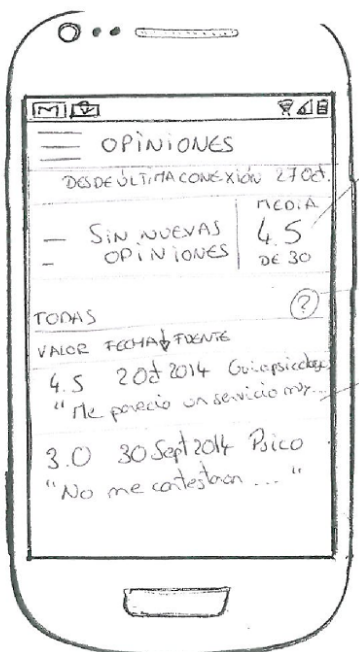 OPINIONES
DESDE ÚLTIMA CONEXIÓN 27 Oct.
SIN NUEVAS
OPINIONES
MEDIA
4.5
DE 30
TODAS
?
VALOR FECHA↓ FUENTE
4.5 2 Oct 2014
"Me pareció un servicio muy...
3.0 30 Sept 2014 Psico
"No me contestaron ... "